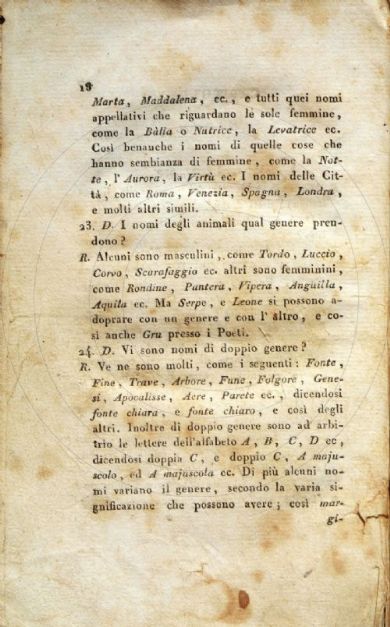 18
Marta, Maddalena, ec., e tutti quei nomi
appellativi che riguardano le sole femmine,
come la Bàlia o Nutrice, la Levatrice ec.
Così benanche i nomi di quelle cose che
hanno sembianza di femmine, come la Not-
te, l'Aurora, la Virtù ec. I nomi delle Cit-
tà, come Roma, Venezia, Spagna, Londra,
e molti altri simili.
23. D. I nomi degli animali qual genere pren-
dono?
R. Alcuni sono masculini, come Tordo, Luccio,
Corvo, Scarafaggio ec. altri sono femminini,
come Rondine, Pantera, Vipera, Anguilla,
Aquila ec. Ma Serpe, e Leone si possono a-
doprare con un genere e con l'altro, e co-
sì anche Gru presso i Poeti.
24. D. Vi sono nomi di doppio genere?
R. Ve ne sono molti, come i seguenti: Fonte,
Fine, Trave, Arbore, Fune, Folgore, Gene-
si, Apocalisse, Aere, Parete ec., dicendosi
fonte chiara, e fonte chiaro, e così degli
altri. Inoltre di doppio genere sono ad arbi-
trio le lettere dell'alfabeto A, B, C, D ec,
dicendosi doppia C, e doppio C, A maju-
scolo, ed A majuscola ec. Di più alcuni no-
mi variano il genere, secondo la varia si-
gnificazione che possono avere; così mar-
gi-